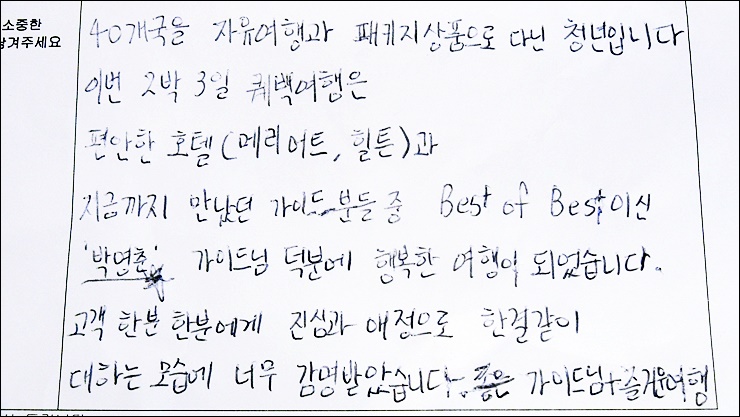 소중한
남겨주세요
40개국을 자유여행과 패키지상품으로 다닌 청년입니다
이번 2박 3일 퀘백여행은
편안한 호텔(메리어트, 힐튼)과
지금까지 만났던 가이드분들 중 Best of Best이신
'박영춘' 가이드님 덕분에 행복한 여행이 되었습니다.
고객 한분 한분에게 진심과 애정으로 한결같이
대하는 모습에 너무 감명받았습니다. 좋은 가이드님+즐거운여행